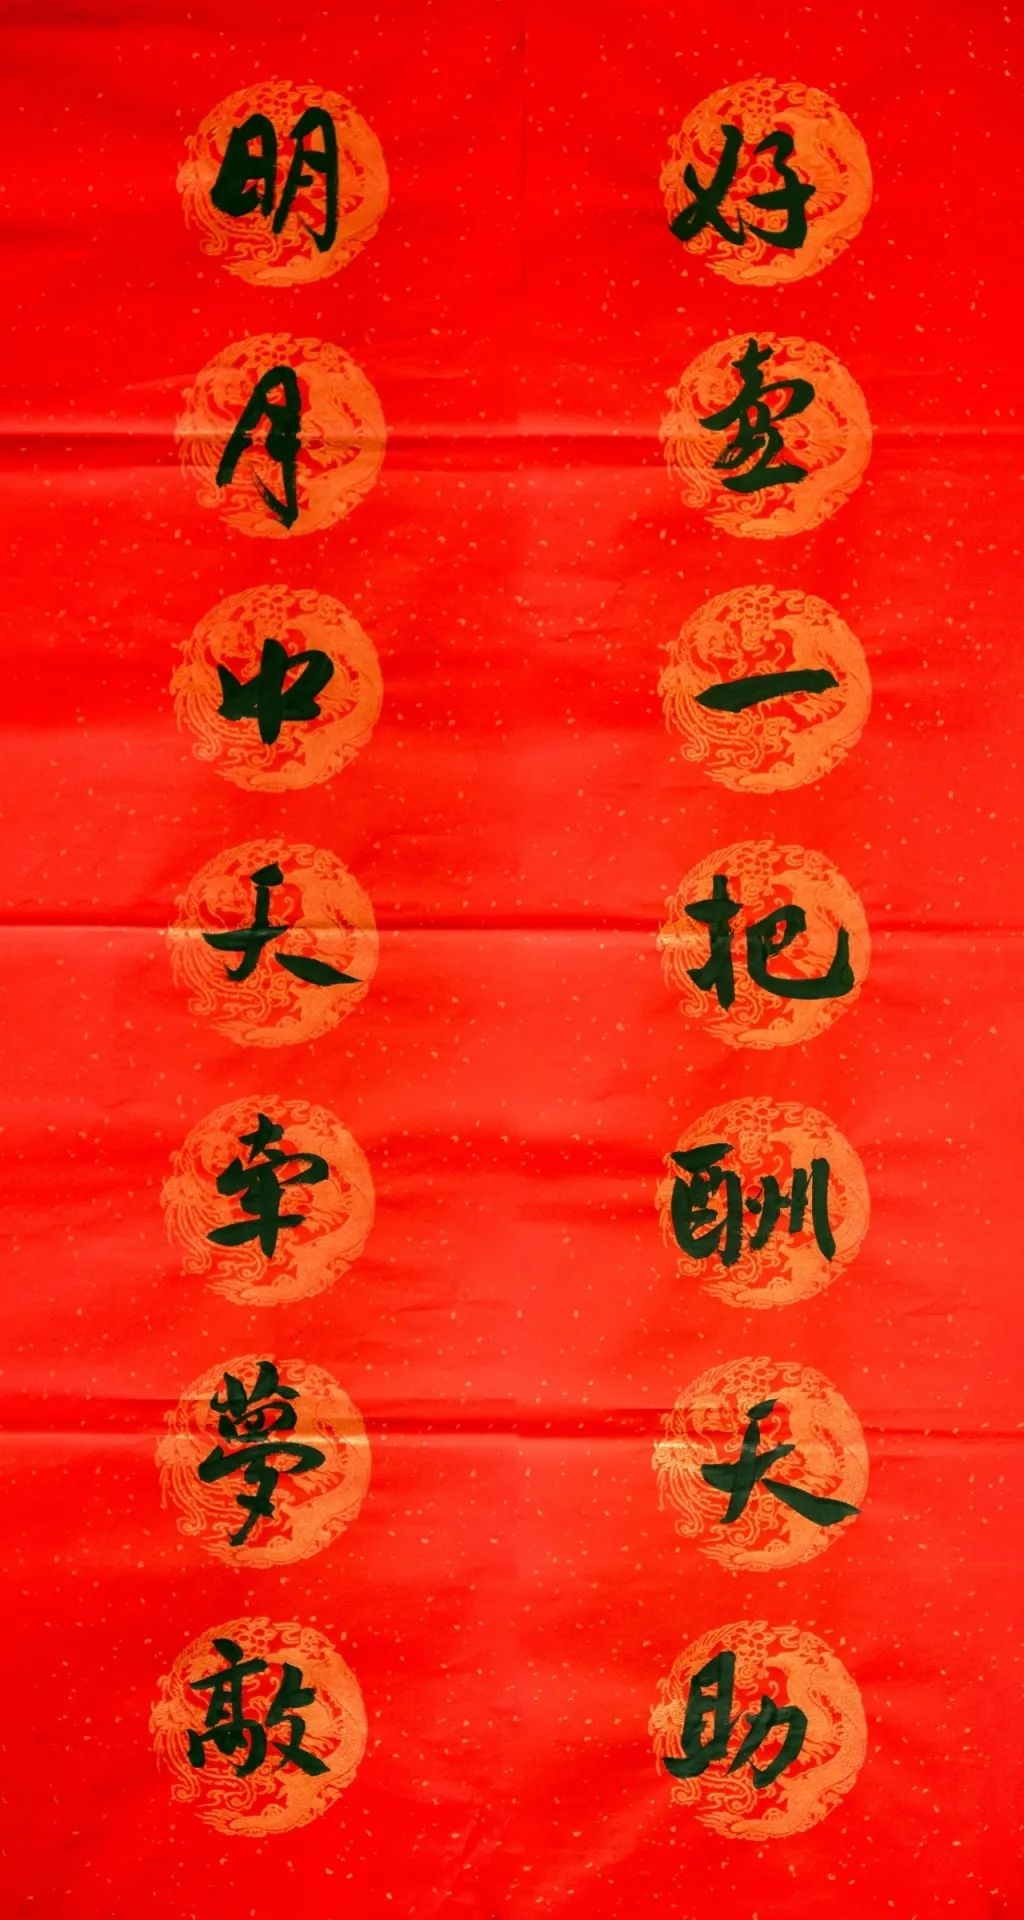 好壺一把酬天助
明月中天牽夢敲